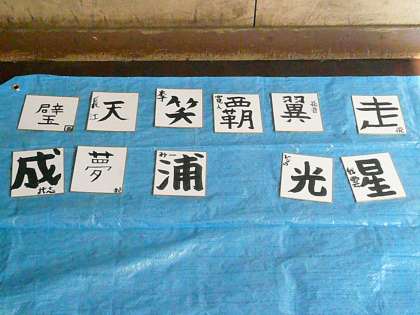 璧 天 笑 覇 翼 走
成 夢 浦 光 星